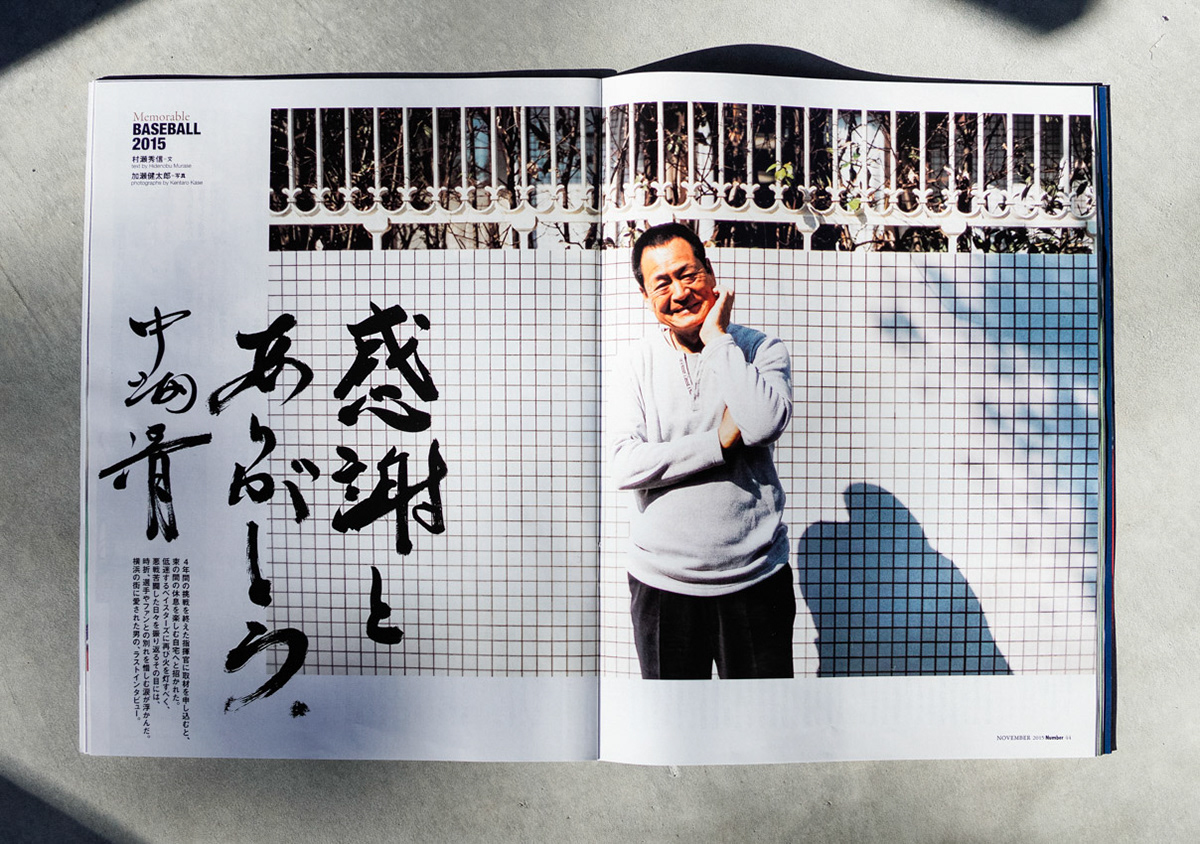 Memorable
BASEBALL
2015
村瀬秀信=文
text by Hidenobu Murase
加瀬健太郎=写真
photographs by Kentaro Kase
感謝と
ありがとう。
中畑清
4年間の挑戦を終えた指揮官に取材を申し込むと、
束の間の休息を楽しむ自宅へと招かれた。
低迷するベイスターズに再び火を灯すべく、
悪戦苦闘した日々を振り返るその目には、
時折、選手やファンとの別れを惜しむ涙が浮かんだ。
横浜の街に愛された男の、ラストインタビュー。
NOVEMBER 2015 Number